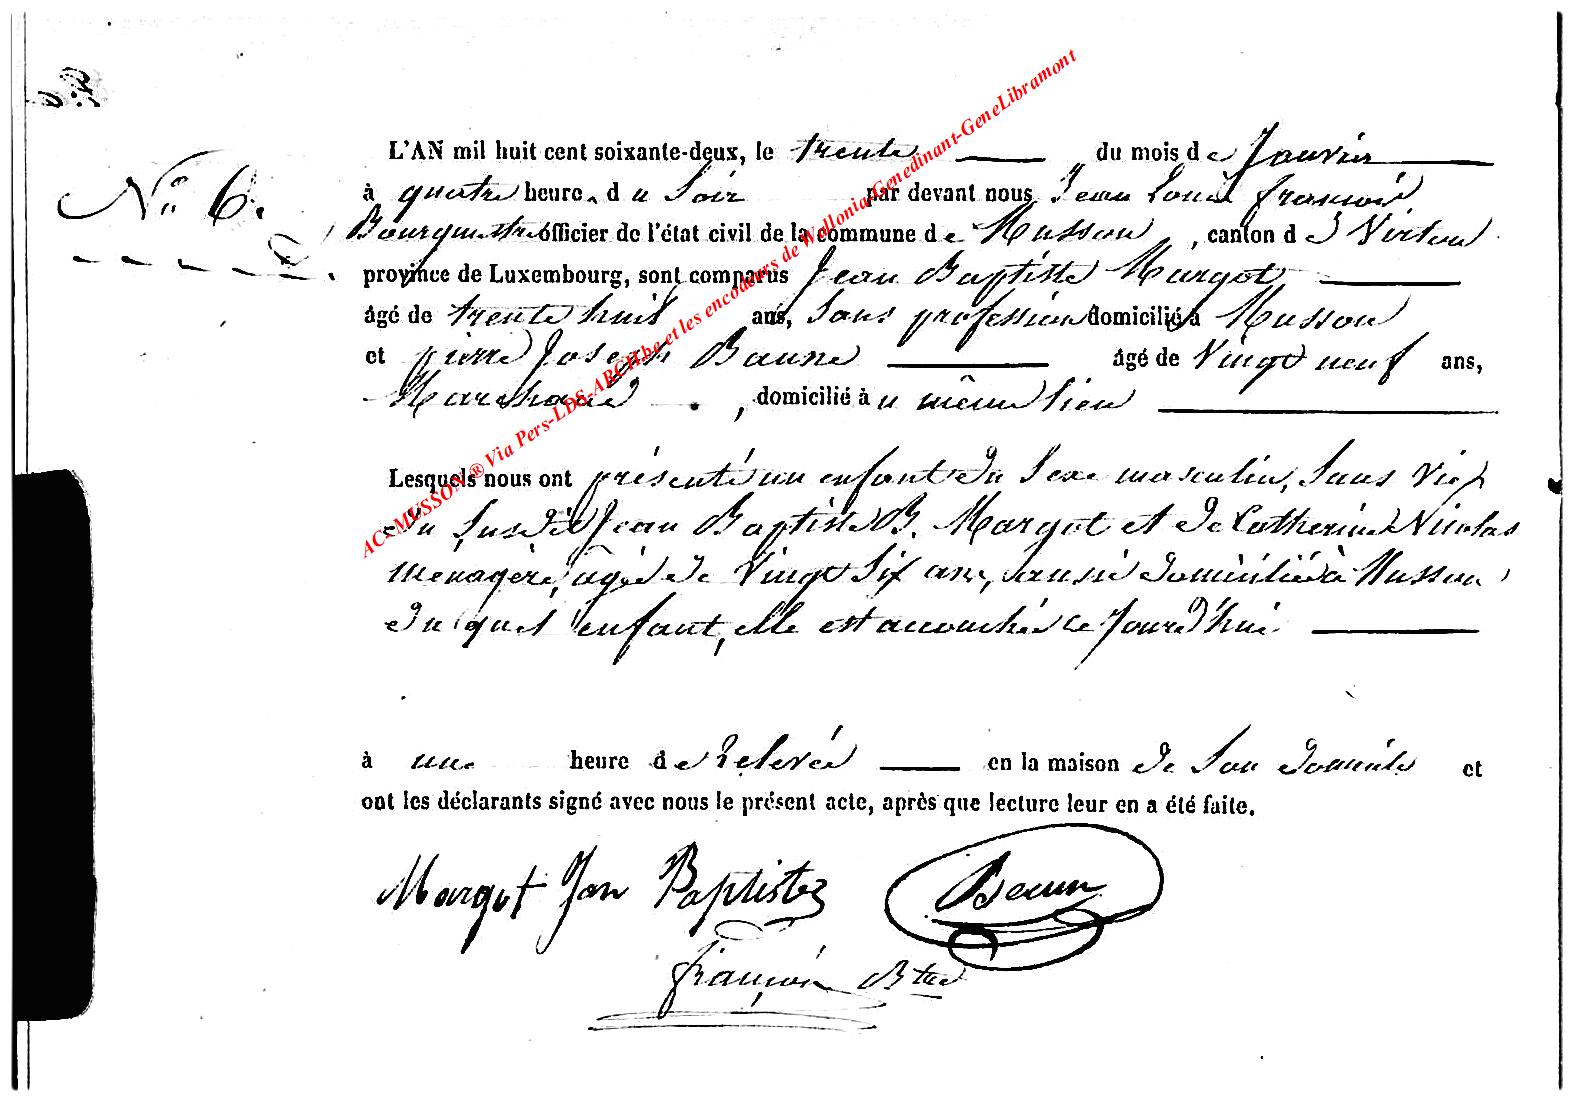 L'AN mil huit cent soixante-deux, le trente du mois de Janvier
N° 6.
à quatre heure. du Soir par devant nous Jean Louis françois
Bourgmestre officier de l'état civil de la commune de Musson, canton de Virton
province de Luxembourg, sont comparus Jean Baptiste Margot
âgé de trente huit ans, Sans profession domicilié à Musson
et pierre Joseph Baune âgé de Vingt neuf ans,
Marchand, domicilié au même lieu
Lesquels nous ont présenté un enfant du Sexe masculin, Sans Vie,
du Susdit Jean Baptiste B. Margot et de Catherine Nicolas
Menagère, agée de Vingt Six ans, aussi domiciliée à Musson,
du quel enfant, elle est accouchée ce Jourd'hui
à une heure de relevée en la maison de Son domicile et
ont les déclarants signé avec nous le présent acte, après que lecture leur en a été faite.
Margot Jan Baptiste
françois Btre
AC-MUSSON ® Via Pers-LDS-ARCH.be et les encodeurs de Wallonia-Genedinant-GeneLibramont